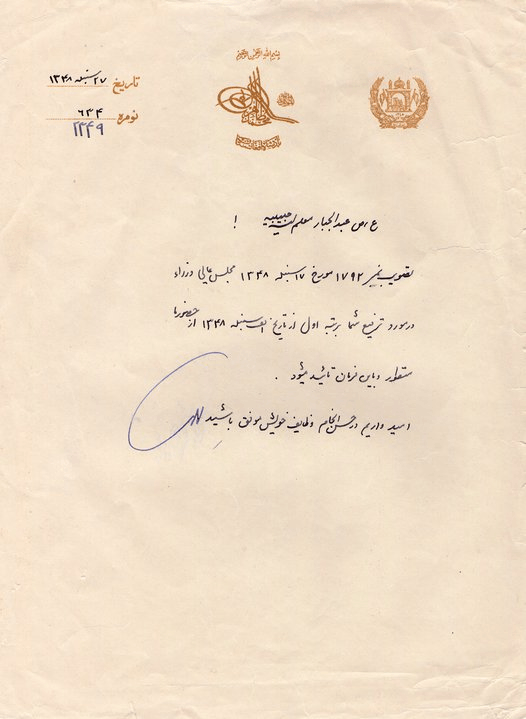 بسم الله الرحمن الرحیم
تاریخ ۲۷ سنبله ۱۳۴۸
نومره ۶۳۴
۱۳۴۹
ع، ص عبدالجبار معلم لیسه حبیبیه !
تصویب نمبر ۱۷۹۲ مورخ ۱۷ سنبله ۱۳۴۸ مجلس عالی وزراء
درمورد ترفیع شما برتبه اول از تاریخ اول سنبله ۱۳۴۸ از حضور ما
منظور و باین فرمان تائید میشود .
امید واریم در حسن انجام وظایف خویش موفق باشید